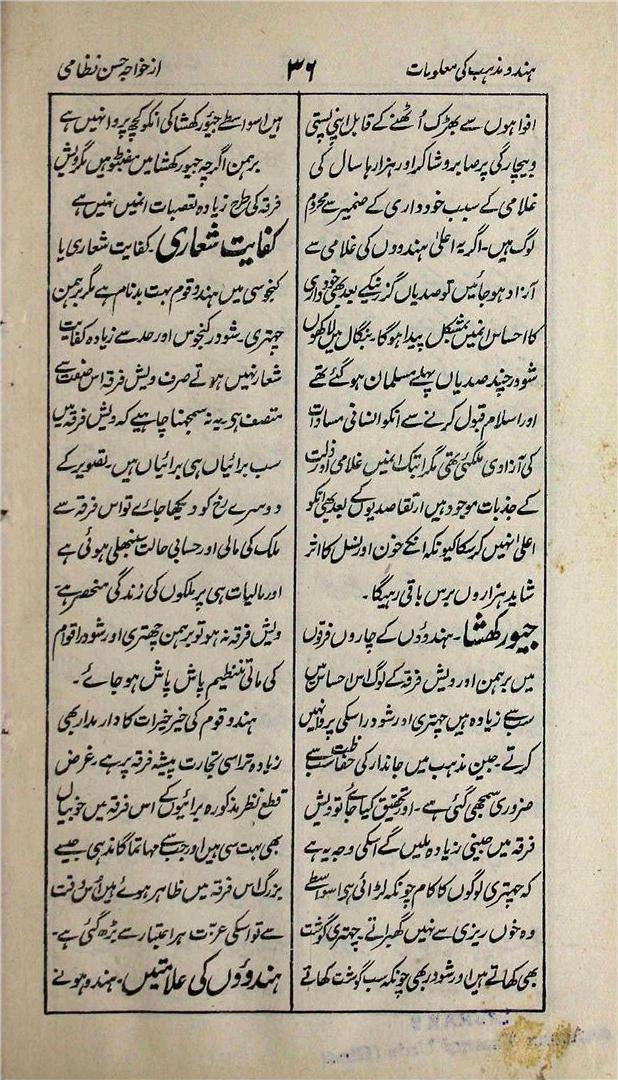 ہندو مذہب کی معلومات
۳۶
از خواجہ حسن نظامی
افواہوں سے بھڑک اُٹھنے کے قابل اپنی پستی
و بیچارگی پر صابر و شاکر اور ہزارہا سال کی
غلامی کے سبب خودداری کے ضمیر سے محروم
لوگ ہیں۔ اگر یہ اعلیٰ ہندووں کی غلامی سے
آزاد ہو جائیں تو صدیاں گزرنیکے بعد بھی خودداری
کا احساس انمیں بمشکل پیدا ہوگا۔ بنگال میں لاکھوں
شودر چند صدیاں پہلے مسلمان ہو گئے تھے
اور اسلام قبول کرنے سے انکو انسانی مساوات
کی آزادی ملگئی تھی مگر ابتک انمیں غلامی اور ذلت
کے جذبات موجود ہیں ارتقا صدیوں کے بعد بھی انکو
اعلیٰ نہیں کر سکا کیونکہ انکے خون اور نسل کا اثر
شاید ہزاروں برس باقی رہیگا۔
جیور کھشا۔ ہندوؤں کے چاروں فرقوں
میں برہمن اور ویش فرقہ کے لوگ اس احساس میں
سب سے زیادہ ہیں چھتری اور شودر اسکی پروا نہیں
کرتے۔ جین مذہب میں جاندار کی حفاظت سب سے
ضروری سمجھی گئی ہے۔ اور تحقیق کیا جائے تو ویش
فرقہ میں جینی زیادہ ملیں گے اسکی وجہ یہ ہے
کہ چھتری لوگوں کا کام چونکہ لڑائی ہے اسواسطے
وہ خوں ریزی سے نہیں گھبراتے۔ چھتری گوشت
بھی کھاتے ہیں اور شودر بھی چونکہ سب گوشت کھاتے
ہیں اسواسطے جیور کھشا کی انکو کچھ پروا نہیں ہے
برہمن اگرچہ جیور کھشا میں مضبوط ہیں مگر ویش
فرقہ کی طرح زیادہ تعصبات انمیں نہیں ہے
کفایت شعاری۔ کفایت شعاری یا
کنجوسی میں ہندو قوم بہت بدنام ہے مگر برہمن
چھتری۔ شودر کنجوس اور حد سے زیادہ کفایت
شعار نہیں ہوتے صرف ویش فرقہ اس صفت سے
متصف ہے یہ نہ سمجھنا چاہیے کہ ویش فرقہ میں
سب برائیاں ہی برائیاں ہیں۔ تصویر کے
دوسرے رخ کو دیکھا جائے تو اس فرقہ سے
ملک کی مالی اور حسابی حالت سنبھلی ہوئی ہے
اور مالیات ہی پر ملکوں کی زندگی منحصر ہے۔
ویش فرقہ نہ ہو تو برہمن چھتری اور شودر اقوام
کی ماتی تنظیم پاش پاش ہو جائے۔
ہندو قوم کی خیر خیرات کا دارمدار بھی
زیادہ تر اسی تجارت پیشہ فرقہ پر ہے۔ غرض
قطع نظر مذکورہ برائیوں کے اس فرقہ میں خوبیاں
بھی بہت سی ہیں اور جب سے مہاتما گاندہی جیسے
بزرگ اس فرقہ میں ظاہر ہوئے ہیں اُس وقت
سے تو اسکی عزت ہر اعتبار سے بڑھ گئی ہے۔
ہندوؤں کی علامتیں۔ ہندو ہونے